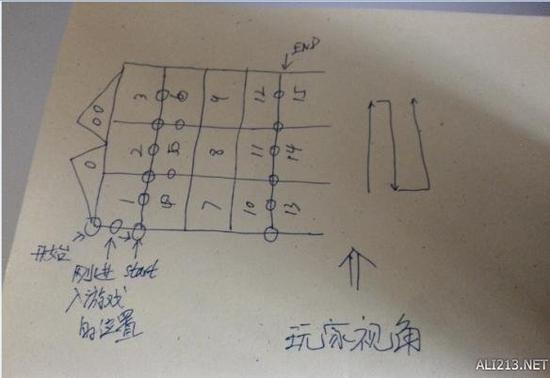 END
3 6 9 12 15
2 5 8 11 14
1 4 7 10 13
0 00
开始
刚进
入游戏
的位置
start
玩家视角
ALI213.NET